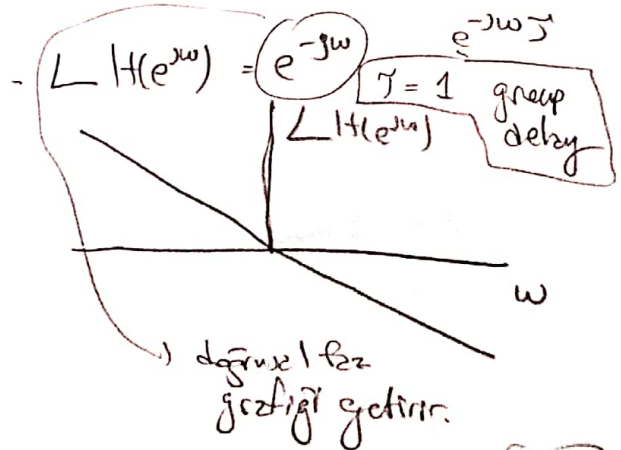 - ∠H(e^jω) = e^-jω
e^-jωτ
τ = 1 group
delay
∠H(e^jω)
ω
doğrusal faz
grafiği getirir.